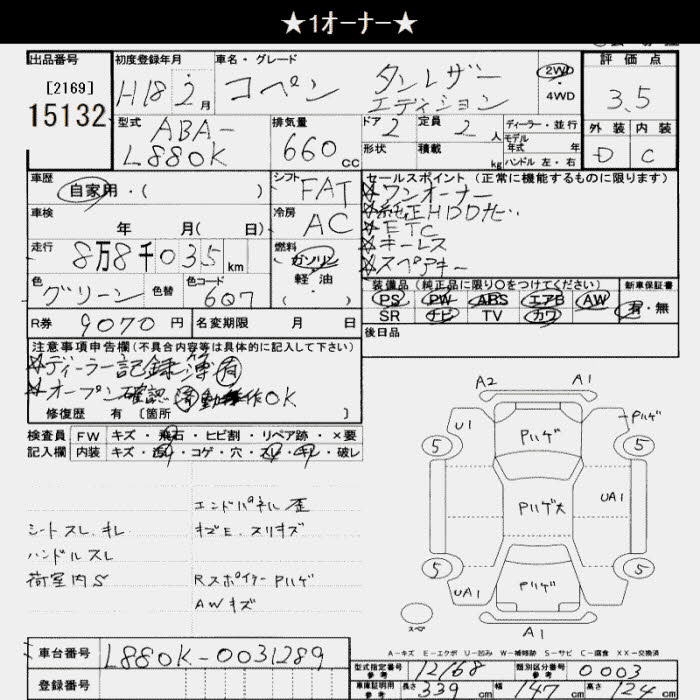 ★1オーナー★
出品番号
[2169]
15132
初度登録年月
H18 2月
車名・グレード
コペン タンレザーエディション
2WD
・
4WD
評価点
3.5
外装 内装
D C
型式
ABA-
L880K
排気量
660cc
ドア 2
定員 2人
形状
積載 kg
ディーラー・並行
モデル年式 年
ハンドル 左・右
車歴
自家用・( )
シフト FAT
セールスポイント(正常に機能するものに限ります)
☆ワンオーナー
☆純正HDDナビ
☆ETC
☆キーレス
☆スペアキー
車検
年 月( 日)
冷房 AC
走行
8万8千035km
燃料
ガソリン
軽油
( ・ )
色
グリーン
色替
色コード
607
装備品(純正品に限り○をつけてください)
PS PW ABS エアB AW
SR ナビ TV カワ
新車保証書
有・無
R券 9070円
名変期限 月 日
後日品
注意事項申告欄(不具合内容等は具体的に記入して下さい)
☆ディーラー記録簿有
☆オープン確認済 動作OK
修復歴 有 [箇所 ]
検査員
記入欄
FW キズ・飛石・ヒビ割・リペア跡・×要
内装 キズ・汚れ・コゲ・穴・スレ・キレ・破レ
エンドパネル 歪
シートスレ.キレ
キズE.スリキズ
ハンドルスレ
荷室内S
Rスポイラー Pハゲ
AWキズ
A2 A1
U1 Pハゲ Pハゲ
5 5
Pハゲ大 UA1
5 5
UA1 Pハゲ
スペア
A1
A-キズ E-エクボ U-凹み W-補修跡 S-サビ C-腐食 XX-交換済
車台番号 L880K-0031289
登録番号
型式指定番号 参考 12168
類別区分番号 参考 0003
車庫証明用 参考 長さ 339cm 幅 147cm 高さ 124cm